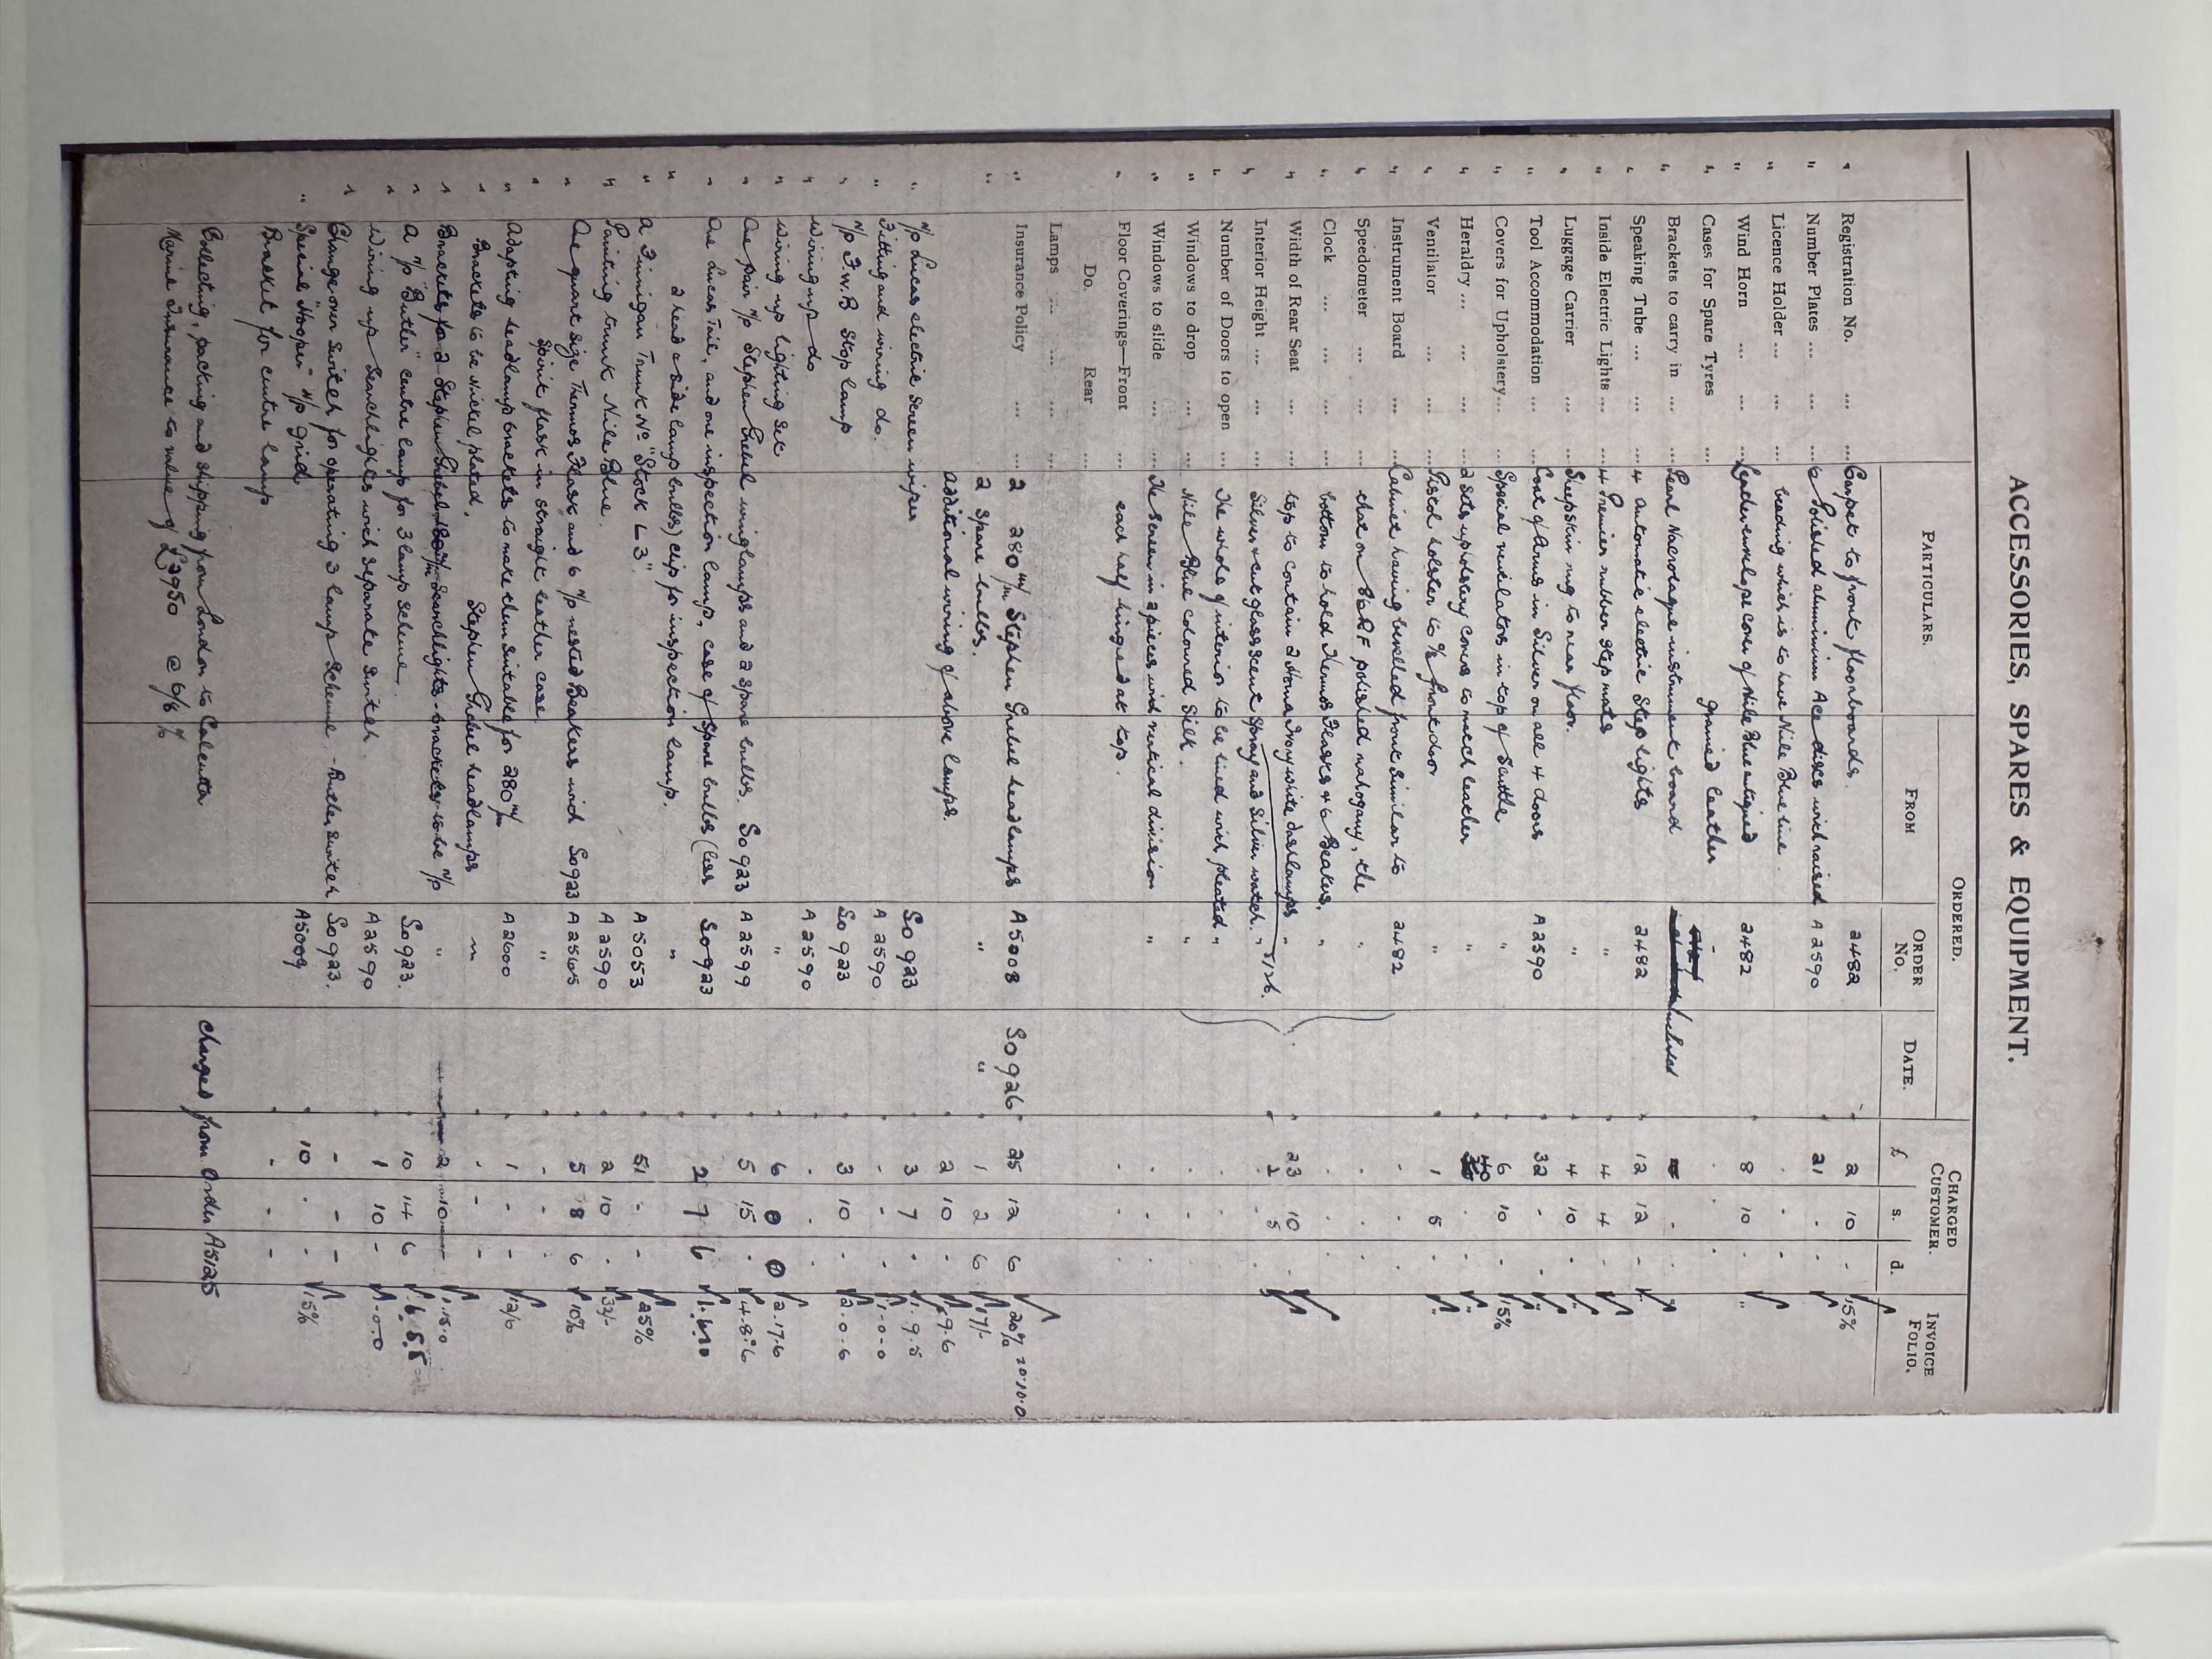 ACCESSORIES, SPARES & EQUIPMENT.
PARTICULARS. ORDERED. CHARGED CUSTOMER. INVOICE FOLIO.
FROM ORDER NO. DATE. £ s. d.
" Registration No. ... ... Carpet to front floorboards. 2482 2 10 - 15%
" Number Plates ... ... ... 6 Polished aluminium Ace discs with raised A 2590 21 - -
" Licence Holder ... ... ... beading which is to have Nile Blue line.
" Wind Horn ... ... ... Leather envelope cover of Nile Blue antiqued 2482 8 10 - "
" Cases for Spare Tyres ... grained leather
" Brackets to carry in ... ... Pearl instrument board included
" Speaking Tube ... ... ... 4 automatic electric Step lights 2482 12 12 -
" Inside Electric Lights ... ... 4 Premier rubber step mats " 4 4 -
" Luggage Carrier ... ... Sheepskin rug to rear floor. " 4 10 -
" Tool Accommodation ... ... Coat of Arms in Silver on all 4 doors A2590 32 - -
" Covers for Upholstery ... ... Special ventilators in top of Scuttle " 6 10 - 15%
" Heraldry ... ... ... ... 2 sets upholstery covers to match leather " 40
" Ventilator ... ... ... Pistol holster to front door " 1 5 -
" Instrument Board ... ... Cabinet having bevelled front similar to 2482
" Speedometer ... ... ... that on polished mahogany, the "
" Clock ... ... ... ... bottom to hold Thermos Flasks & 6 Beakers, "
" Width of Rear Seat ... ... top to contain 2 ivory white dashlamps " 23 10 -
" Interior Height ... ... ... Silver & cut glass scent spray and Silver watch. " 5/26. 2 5
" Number of Doors to open ... The whole of interior to be lined with pleated "
" Windows to drop ... ... Nile Blue coloured Silk. "
" Windows to slide ... ... The screen in 2 pieces and vertical division "
" Floor Coverings—Front ... each half hinged at top.
Do. Rear ...
Lamps ... ... ...
" Insurance Policy ... ... 2 280 m/m Stephen Grebel headlamps A5008 So 926 25 12 6 20% 20.10.0
" 2 spare bulbs. " " 1 2 6 17/-
additional wiring of above lamps. 2 10 -
" N/P Lucas electric screen wiper So 923 3 7 -
" Fitting and wiring do. A 2590 - - - 1.0.0
" N/P F.W.B Stop lamp So 923 3 10 - 2.0.6
" wiring up do A 2590
" Wiring up lighting set " 6 0 0 2.17.6
" One pair N/P Stephen Grebel winglamps and 2 spare bulbs. So 923 A 2599 5 15 - 4.8.6
" One Lucas tail, and one inspection lamp, case of spare bulbs (less So 923 2 7 6
" 2 head & side lamp bulbs) clip for inspection lamp. "
" A Finnigan Trunk No "Stock L 3". A 5053 51 - - 25%
" Painting trunk Nile Blue. A 2590 2 10 - 32/-
" One quart size Thermos Flask and 6 N/P nested Beakers with So923 A 2565 5 8 6 10%
" Spirit flask in straight leather case. "
" Adapting headlamp brackets to make them suitable for 280 m/m A 2600 1 - - 12/6
" Brackets to be Nickel plated. Stephen Grebel headlamps "
" Brackets for 2 Stephen Grebel Searchlights - brackets to be N/P " 2 10 - 1.15.0
" A N/P "Butler" centre lamp for 3 lamp scheme. So 923. 10 14 6
" Wiring up Searchlights with separate switch. A 2590 1 10 - 1.0.0
" Change over switch for operating 3 lamp scheme - Butler switch So 923. - - -
" Special "Hooper" N/P grid A5009 10 . . 15%
Bracket for centre lamp - - -
Collecting, packing and shipping from London to Calcutta charged from Order A5125
Marine Insurance to value of £3950 @ 6/6 %